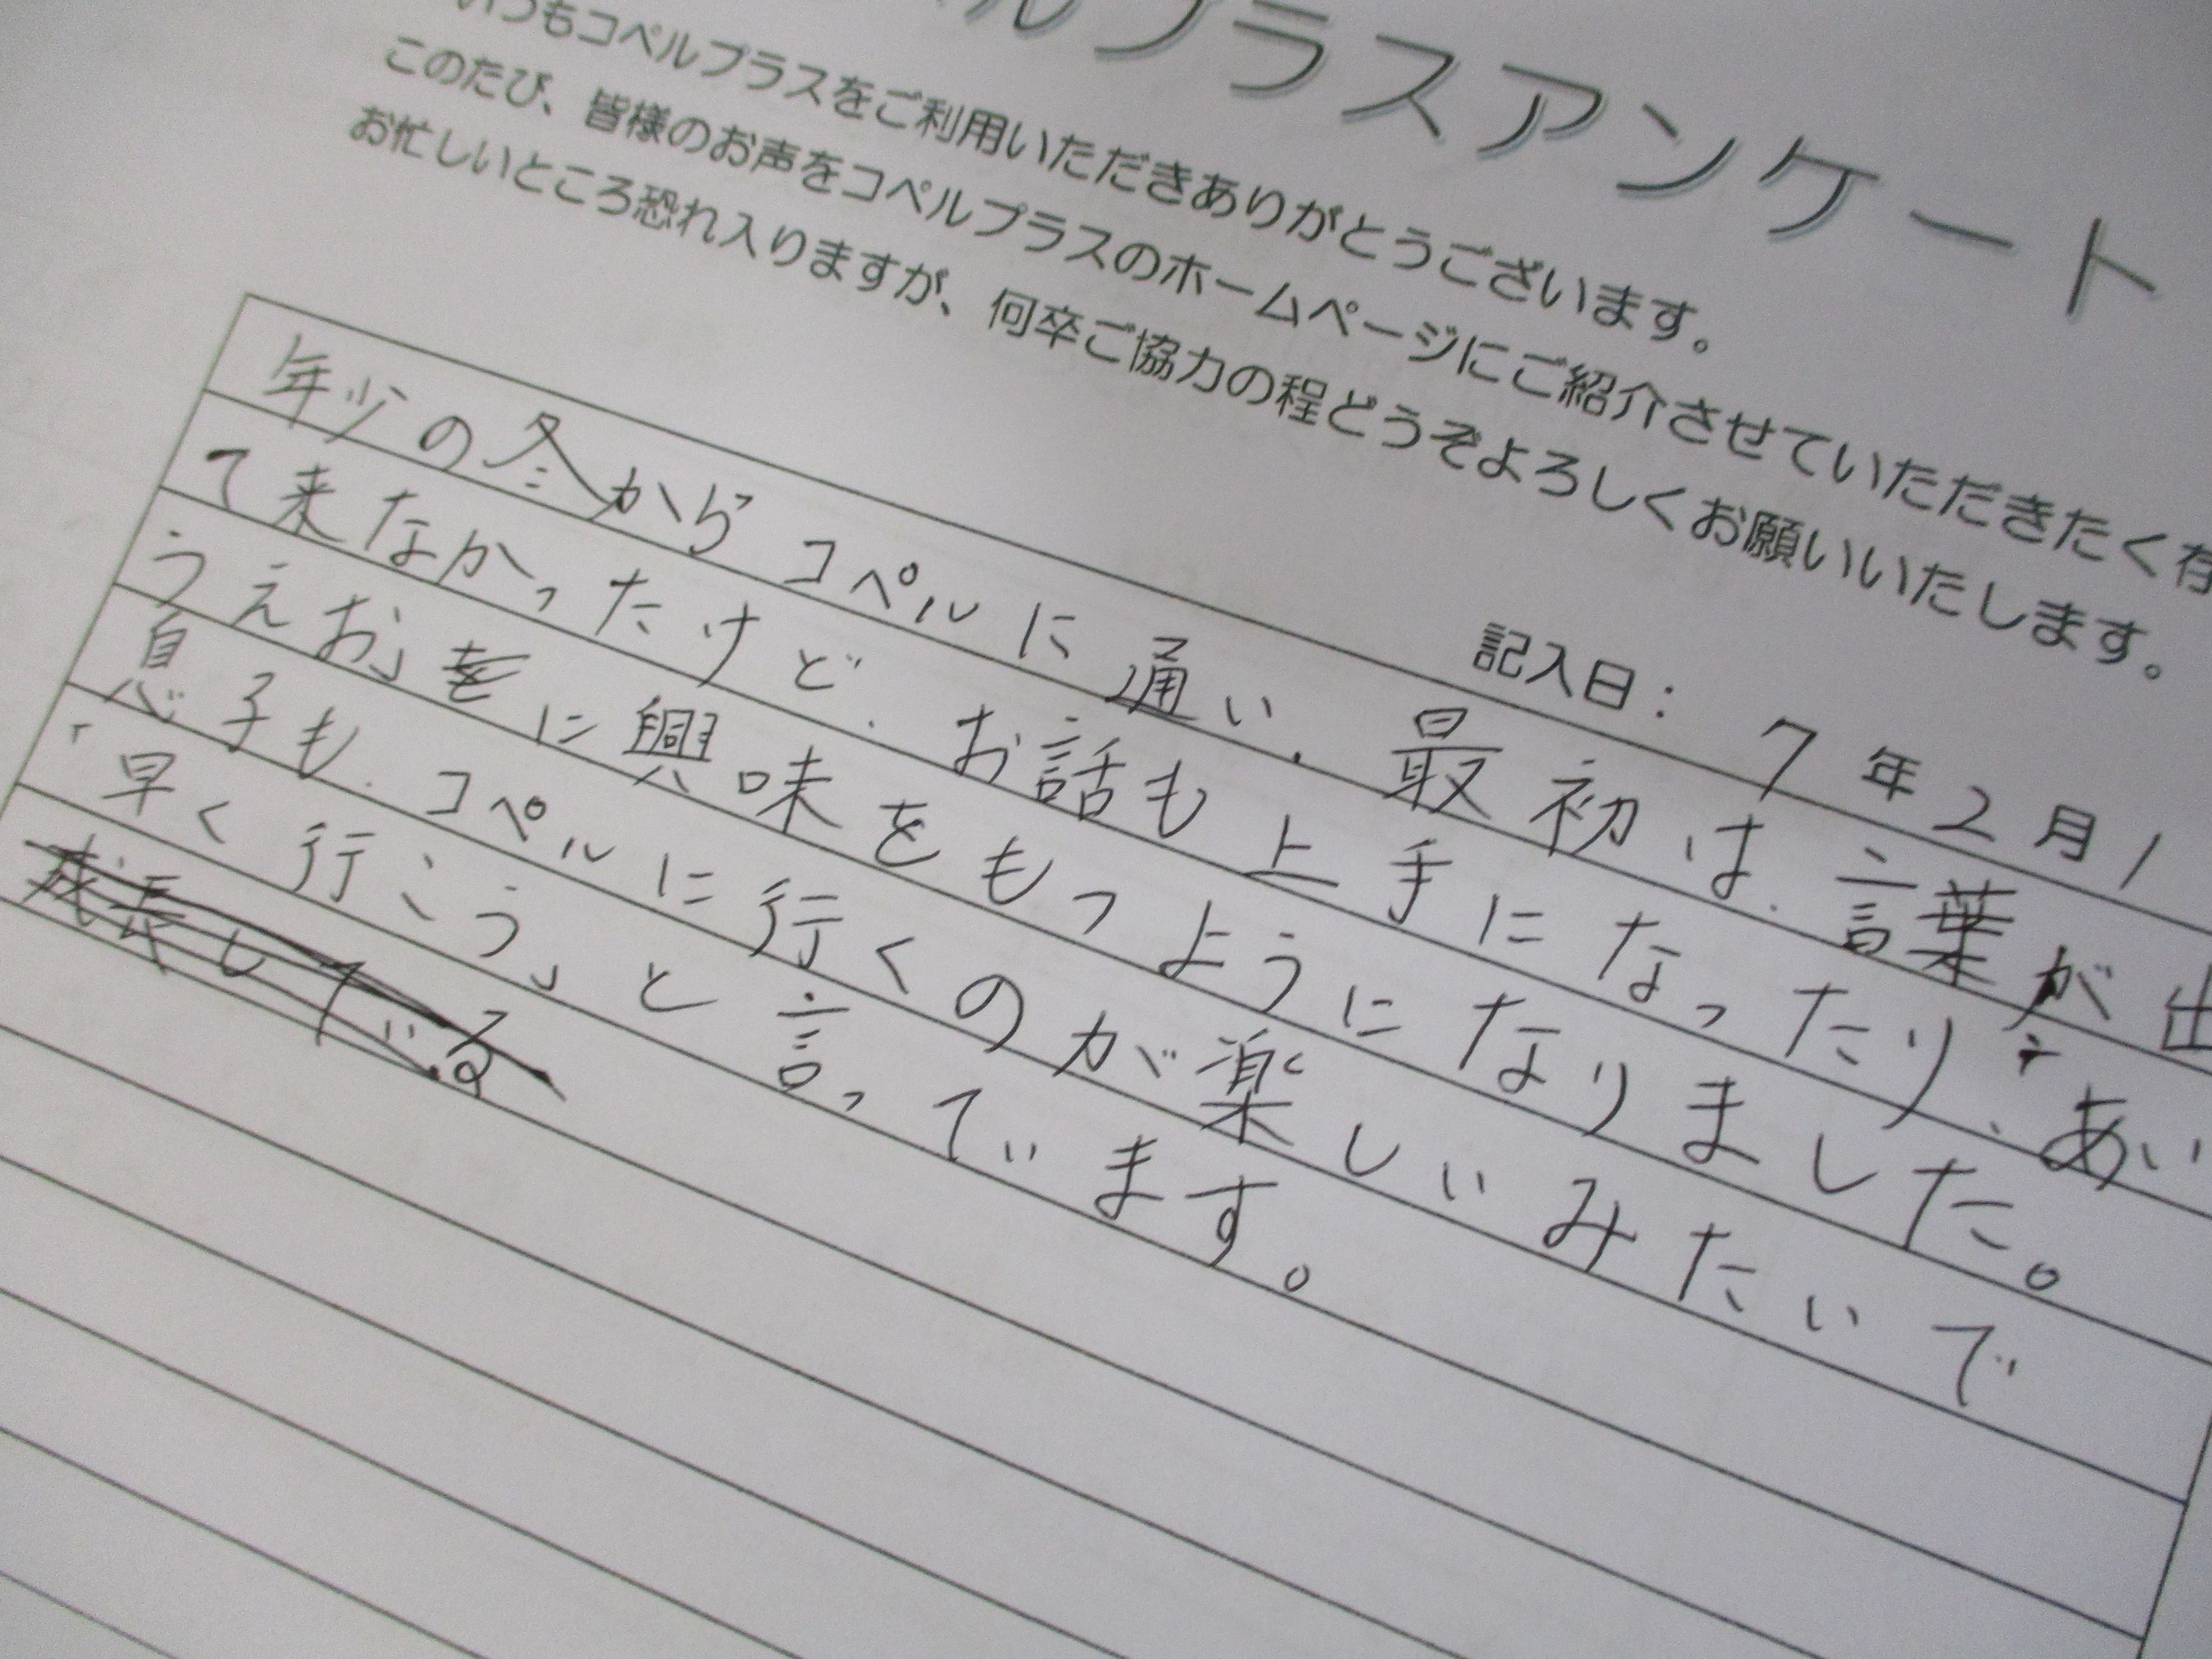 ルプラスアンケート
いつもコペルプラスをご利用いただきありがとうございます。
このたび、皆様のお声をコペルプラスのホームページにご紹介させていただきたく存
お忙しいところ恐れ入りますが、何卒ご協力の程どうぞよろしくお願いいたします。
記入日： 7年2月1
年少の冬からコペルに通い、最初は、言葉が出
て来なかったけど、お話も上手になったり、「あい
うえお」に興味をもつようになりました。
息子も、コペルに行くのが楽しいみたいで
「早く行こう」と言っています。
成長している